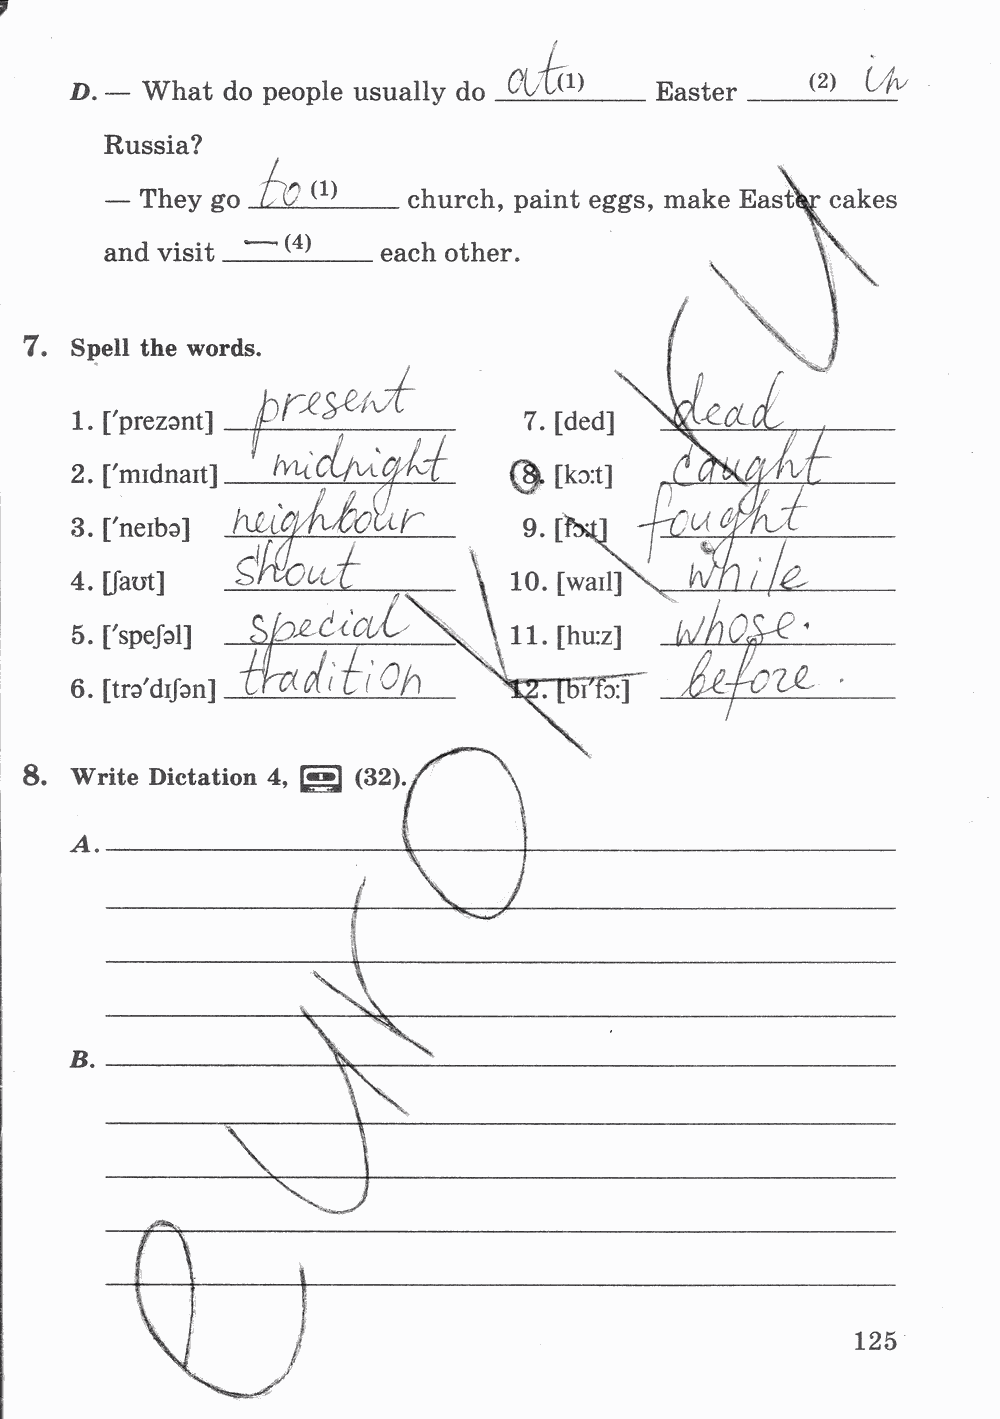 D. — What do people usually do at (1) Easter (2) in
Russia?
— They go to (1) church, paint eggs, make Easter cakes
and visit — (4) each other.
7. Spell the words.
1. [ʹprezənt] present
2. [ʹmɪdnaɪt] midnight
3. [ʹneɪbə] neighbour
4. [ʃaʊt] shout
5. [ʹspeʃəl] special
6. [trəʹdɪʃən] tradition
7. [ded] dead
8. [kɔ:t] caught
9. [fɔ:t] fought
10. [waɪl] while
11. [hu:z] whose.
12. [bɪʹfɔ:] before.
8. Write Dictation 4, (32).
A.
B.
125